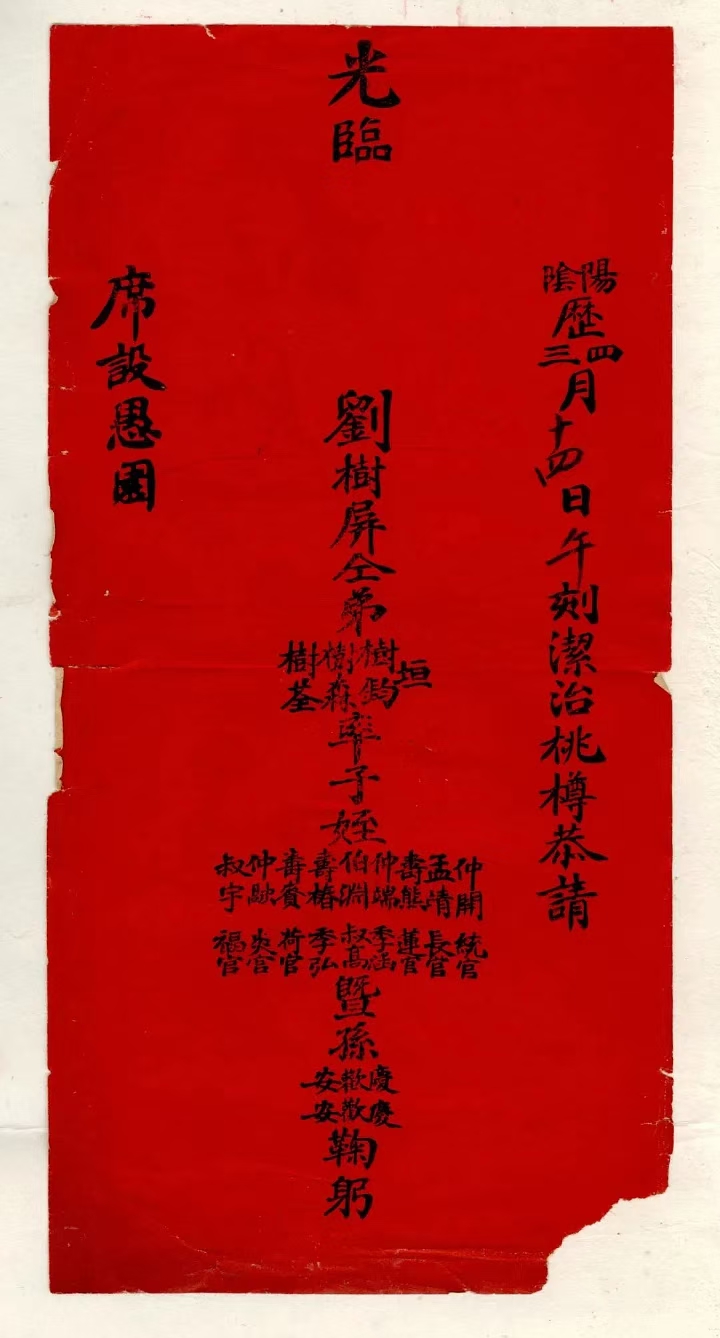 陽陰歷四三月十四日午刻潔治桃樽恭請
光臨
劉樹屏仝弟樹垣樹鈞樹森樹荃率子姪
仲開孟晴壽熊仲端伯淵壽椿壽賓仲歟叔宇
統官長官蓮官季涵叔高季弘荷官炎官福官
暨孫慶慶歡歡安安鞠躬
席設愚園